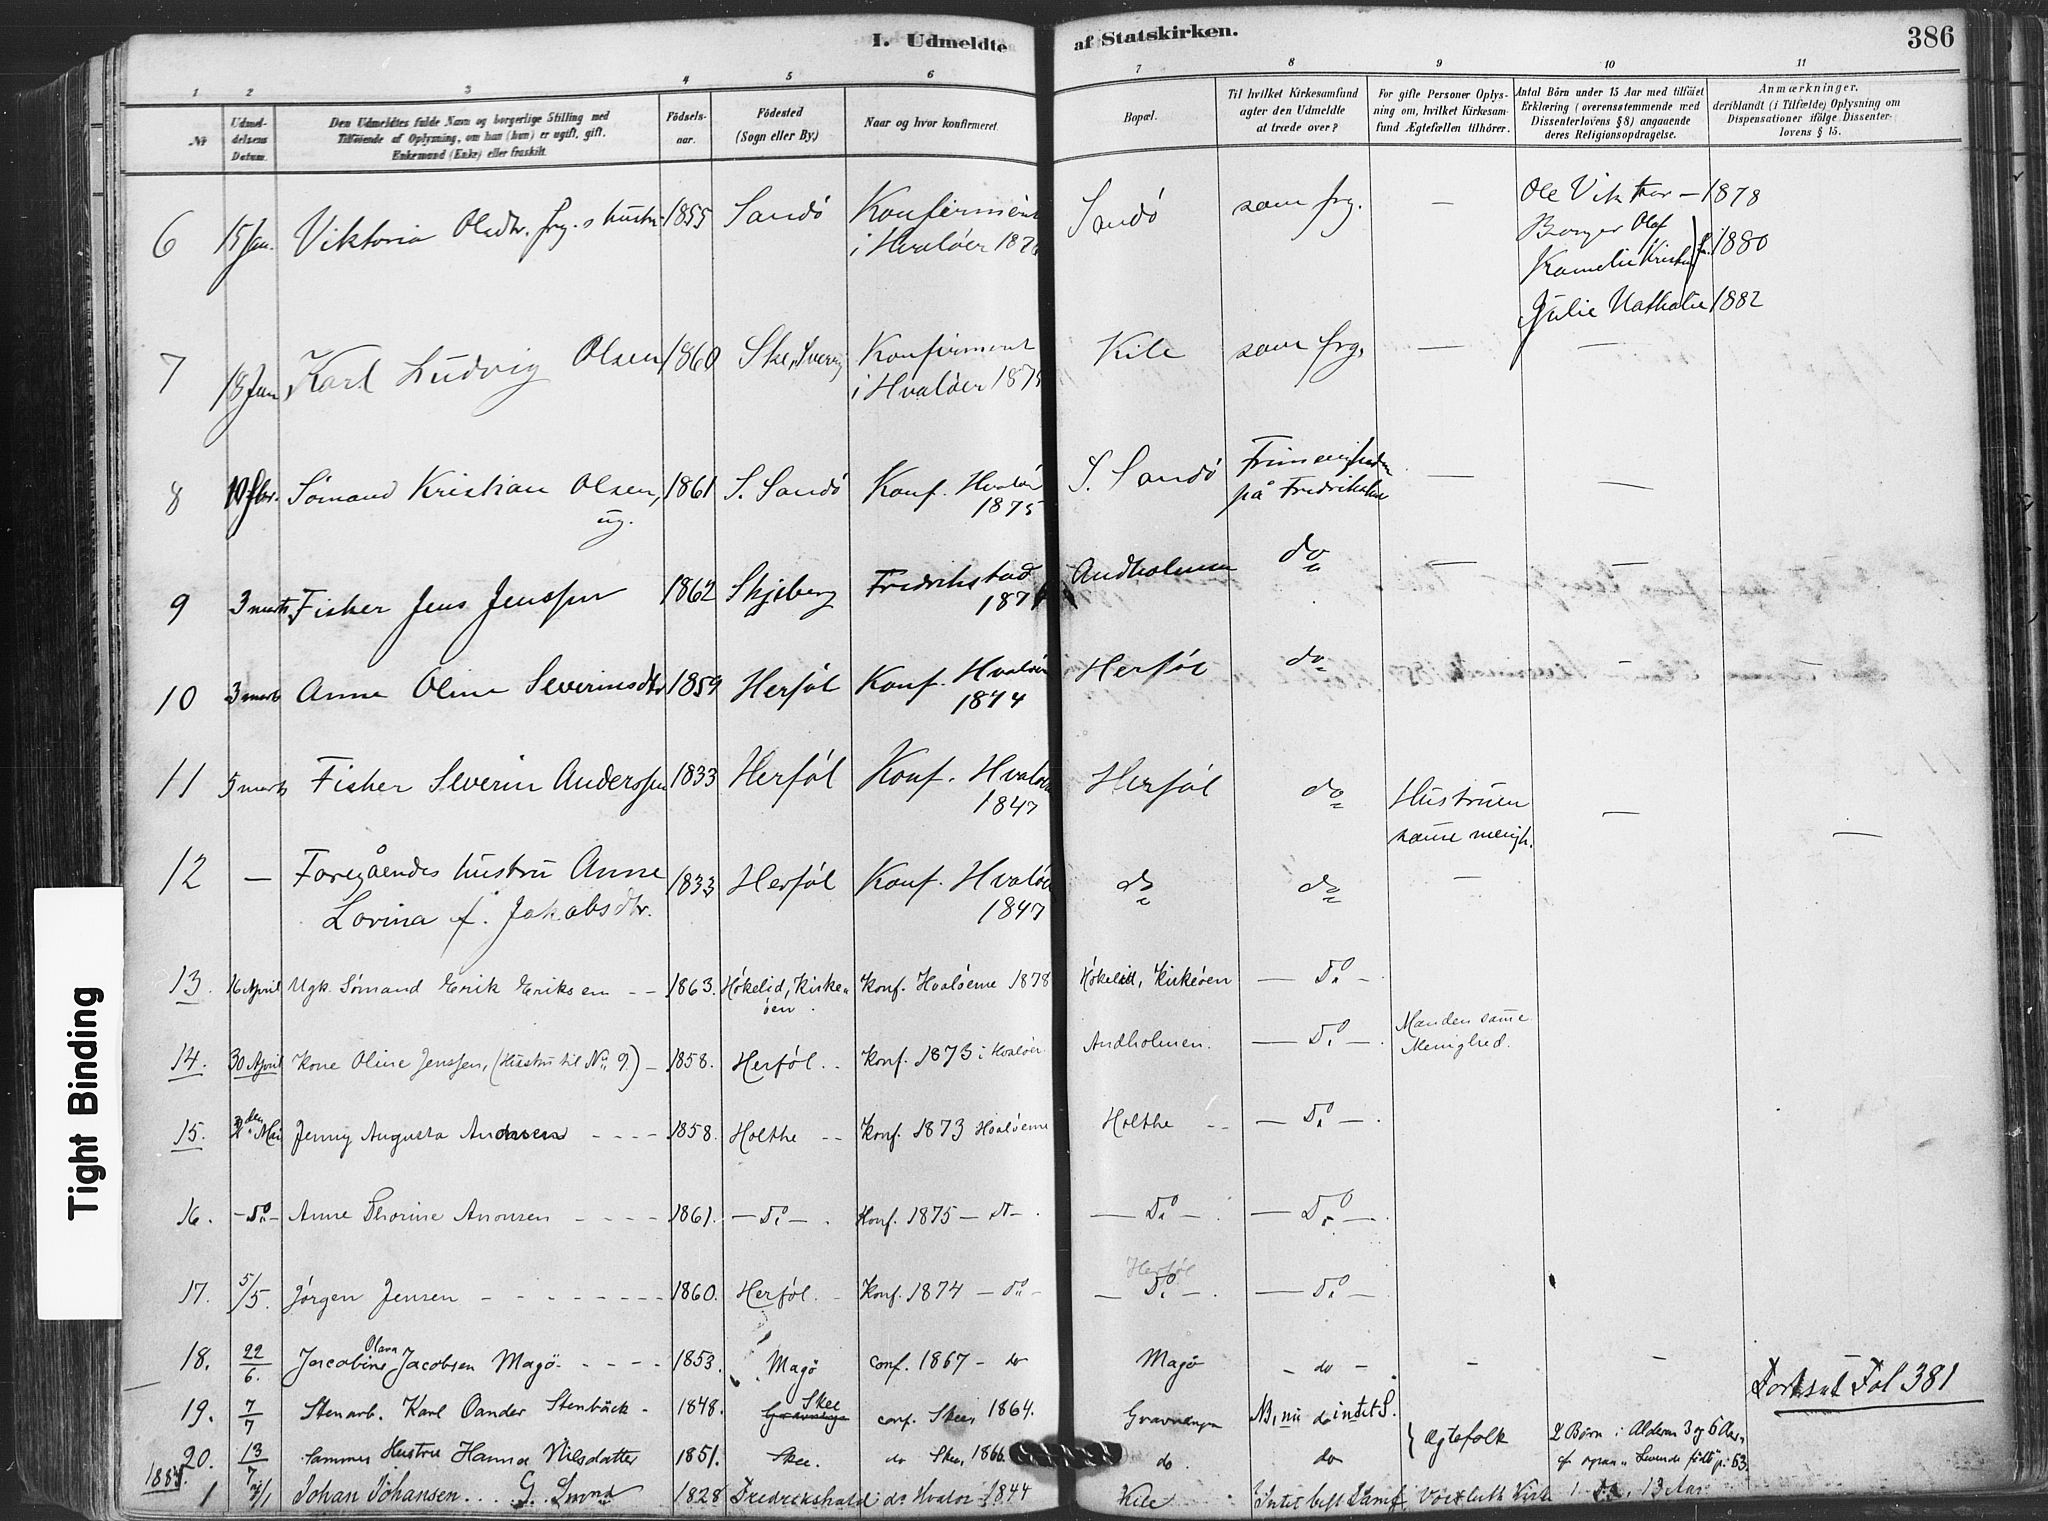 I. Udmeldte af Statskirken. 386
1 2 3 4 5 6 7 8 9 10 11
Nr
Udmeldelsens Datum.
Den Udmeldtes fulde Navn og borgerlige Stilling med
Tilføiende af Oplysning, om han (hun) er ugift, gift,
Enkemand (Enke) eller fraskilt.
Fødselsaar.
Fødested
(Sogn eller By.)
Naar og hvor konfirmeret.
Bopæl.
Til hvilket Kirkesamfund
agter den Udmeldte
at træde over?
For gifte Personer Oplysning om, hvilket Kirkesamfund Ægtefællen tilhører.
Antal Børn under 15 Aar med tilføiet
Erklæring (overensstemmende med
Dissenterlovens § 8) angaaende
deres Religionsopdragelse.
Anmærkninger,
deriblandt (i Tilfælde) Oplysning om
Dispensationer ifølge Dissenterlovens § 15.
6 15 Jan. Viktoria Olsdtr. frg.s hustru 1855 Sandö Konfirmeret i Hvaløer Sandö som frg. — Ole Viktor — 1878
Borger Olaf
Kamelie Kristin 1880
Julie Nathalie 1882
7 18 Jan. Karl Ludvig Olsen 1860 Skee, Sverig Konfirmeret i Hvaløer Kile som frg. — —
8 Sömand Kristian Olsen, ug. 1861 S. Sandö Konf. Hvalöer 1875 S. Sandö Frimenigheden på Fredrikshald — —
9 3 marts Fisker Jens Jenssen 1862 Skjeberg Fredrikstad Andholmen do — —
10 3 marts Anne Oline Severinsdtr 1859 Herföl Konf. Hvalöer 1874 Herföl do — —
11 5 marts Fisker Severin Anderssen 1833 Herföl Konf. Hvalöer 1847 Herföl do Hustruen samme menigh. — —
12 — Foregåendes hustru Anne Lovina f. Jakobsdtr. 1833 Herföl Konf. Hvalöer 1847 do do —
13. 16 April Ugk. Sömand Erik Eriksen -- 1863. Hökelid, Kirkeöen. Konf. Hvalöerne 1878 Hökelid, Kirkeöen — Do —
14. 30 April Kone Oline Jenssen, (Hustru til No. 9.) — 1858. Herföl .. Konf. 1873 i Hvalöer. Andholmen. — Do — Manden samme Menighed.
15. Mai Jenny Augusta Andersen ---- 1858. Holthe -- Konf. 1873 Hvalöerne Holthe -- — Do —
16. — Do — Anne Thorine ---- 1861. — Do — . Konf. 1875 — do — . — Do — — Do —
17. 5/5. Jörgen Jensen -------- 1860. Herföl. - Konf. 1874 — Do — Herföl — Do — . — Do —
18. 22/6. Jacobine Olava Jacobsen Magö ---- 1853. Magö conf. 1867 — do Magö — do — — —
Fortsat Fol 381
19. 7/7 Stenarb. Karl Oander Stenbäck - 1848. Skee conf. Skee 1864. NB, nu do intet S.
20. 13/7 Sammes Hustru Hanna Nilsdatter 1851. Skee. do Skee 1866 do. do } Ægtefolk 2 Børn i Alderen 3 og 6 Aar
1 Johan Johansen... 1828 Fredrikshald do Hvalöer 1844 Kile Intet best. Samf. 1 13 Aar
Tight Binding